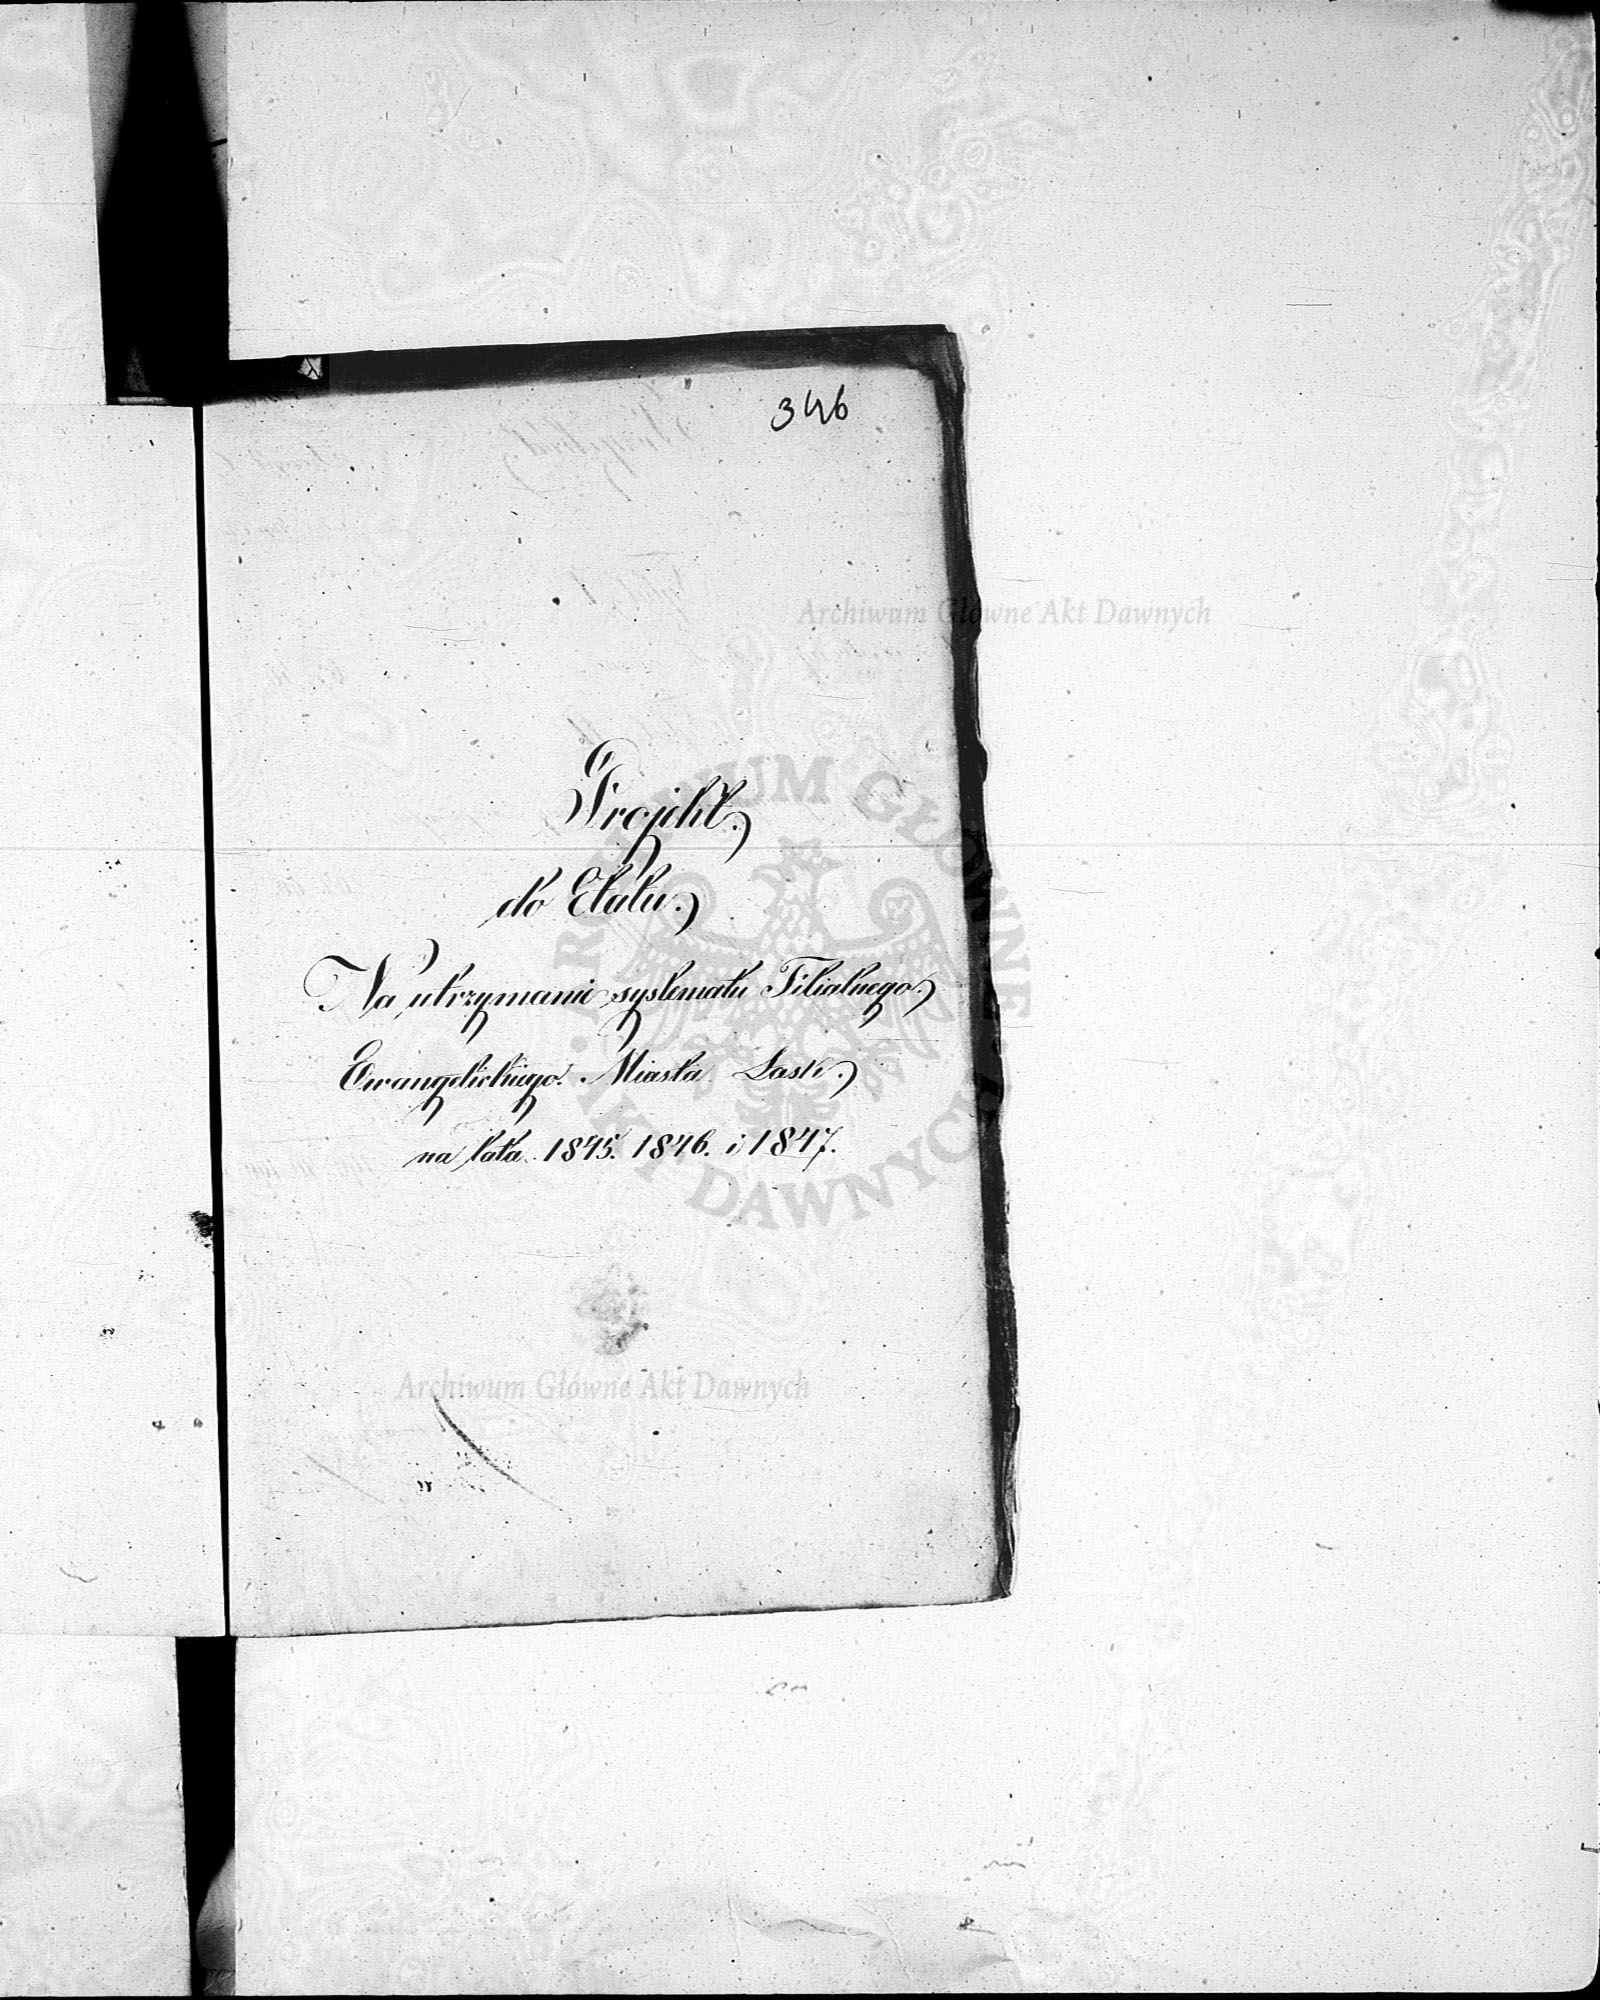 346
Archiwum Główne Akt Dawnych
Projekt.
do Etatu.
Na utrzymanie systematu Filialnego.
Ewangelickiego. Miasta Łask.
na lata. 1845. 1846. i 1847.
ARCHIWUM GŁÓWNE · AKT DAWNYCH ·
Archiwum Główne Akt Dawnych